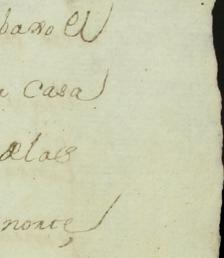 baxo el
a casa
a las
norte